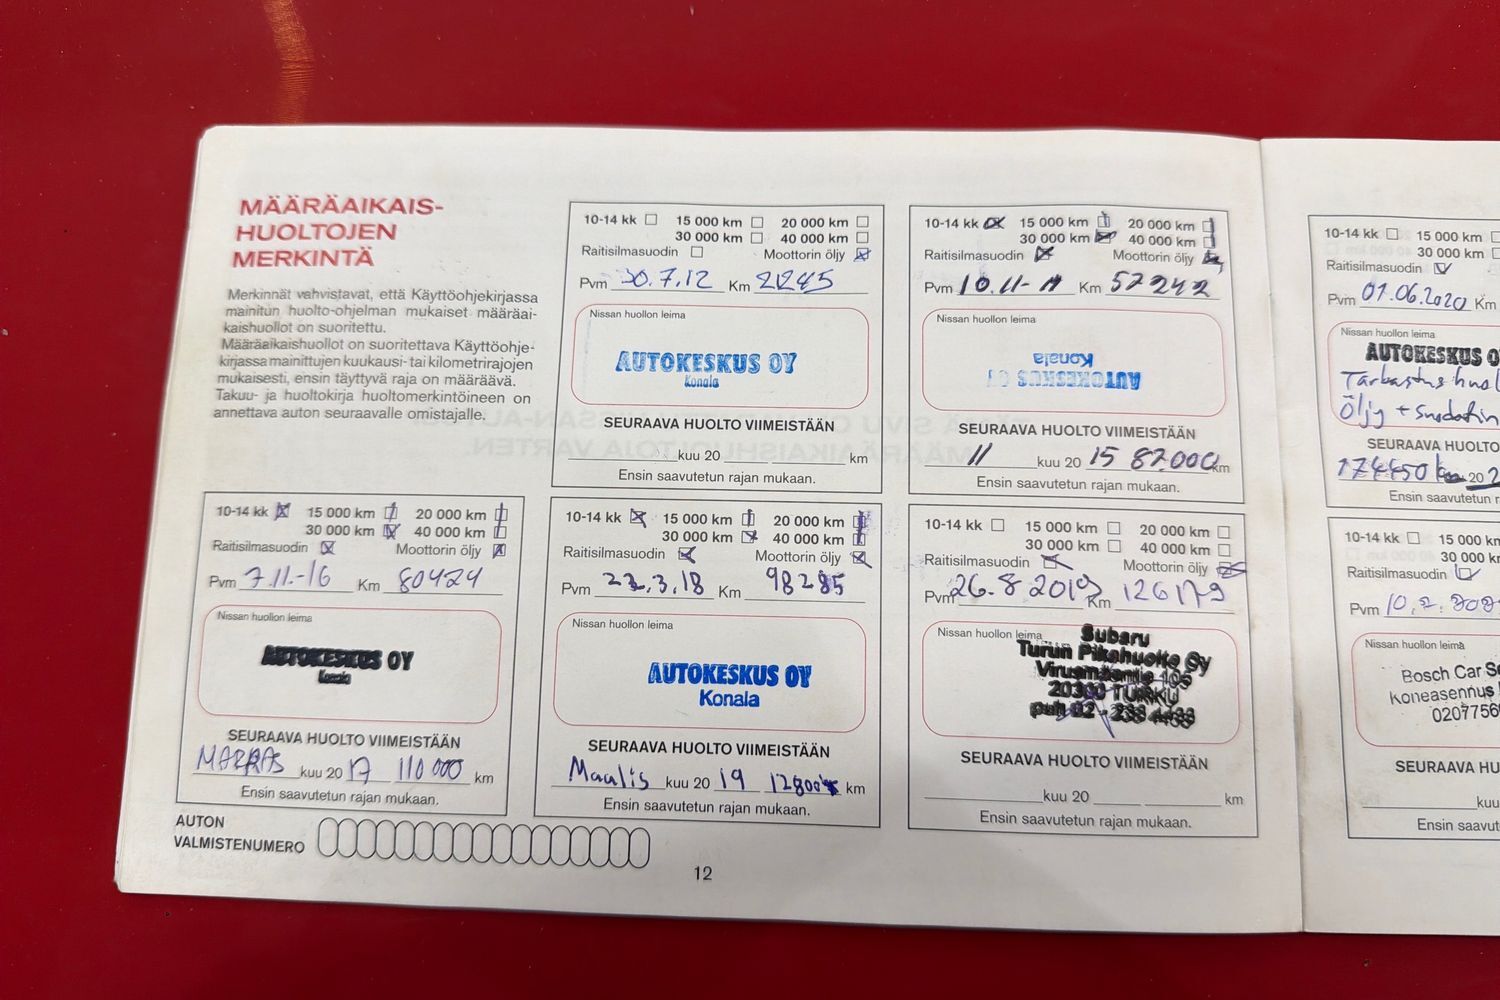 MÄÄRÄAIKAIS-
HUOLTOJEN
MERKINTÄ
Merkinnät vahvistavat, että Käyttöohjekirjassa
mainitun huolto-ohjelman mukaiset määräai-
kaishuollot on suoritettu.
Määräaikaishuollot on suoritettava Käyttöohje-
kirjassa mainittujen kuukausi- tai kilometrirajojen
mukaisesti, ensin täyttyvä raja on määräävä.
Takuu- ja huoltokirja huoltomerkintöineen on
annettava auton seuraavalle omistajalle.
10-14 kk 15 000 km 20 000 km
30 000 km 40 000 km
Raitisilmasuodin Moottorin öljy
Pvm 30.7.12 Km 21245
Nissan huollon leima
AUTOKESKUS OY
Konala
SEURAAVA HUOLTO VIIMEISTÄÄN
kuu 20 km
Ensin saavutetun rajan mukaan.
10-14 kk 15 000 km 20 000 km
30 000 km 40 000 km
Raitisilmasuodin Moottorin öljy
Pvm 10.11- Km 57242
Nissan huollon leima
AUTOKESKUS OY
Konala
SEURAAVA HUOLTO VIIMEISTÄÄN
11 kuu 20 15 87.000 km
Ensin saavutetun rajan mukaan.
10-14 kk 15 000 km
30 000 km
Raitisilmasuodin
Pvm 01.06.2020 Km
Nissan huollon leima
AUTOKESKUS O
Öljy + suodatin
SEURAAVA HUOLTO
174450 km 20 2
Ensin saavutetun r
10-14 kk 15 000 km 20 000 km
30 000 km 40 000 km
Raitisilmasuodin Moottorin öljy
Pvm 7.11.-16 Km 80424
Nissan huollon leima
AUTOKESKUS OY
Konala
SEURAAVA HUOLTO VIIMEISTÄÄN
MARRAS kuu 20 17 110 000 km
Ensin saavutetun rajan mukaan.
10-14 kk 15 000 km 20 000 km
30 000 km 40 000 km
Raitisilmasuodin Moottorin öljy
Pvm 22.3.18 Km 98285
Nissan huollon leima
AUTOKESKUS OY
Konala
SEURAAVA HUOLTO VIIMEISTÄÄN
Maalis kuu 20 19 km
Ensin saavutetun rajan mukaan.
10-14 kk 15 000 km 20 000 km
30 000 km 40 000 km
Raitisilmasuodin Moottorin öljy
Pvm 26.8 2019 Km 126179
Nissan huollon leima
Subaru
Turun Pikahuolto Oy
Virusmäentie 105
20300 TURKU
puh 02 - 233 4433
SEURAAVA HUOLTO VIIMEISTÄÄN
kuu 20 km
Ensin saavutetun rajan mukaan.
10-14 kk 15 000 k
30 000 k
Raitisilmasuodin
Pvm
Nissan huollon leima
Bosch Car Se
Koneasennus
0207756
SEURAAVA HU
kuu
Ensin saavut
AUTON
VALMISTENUMERO
12